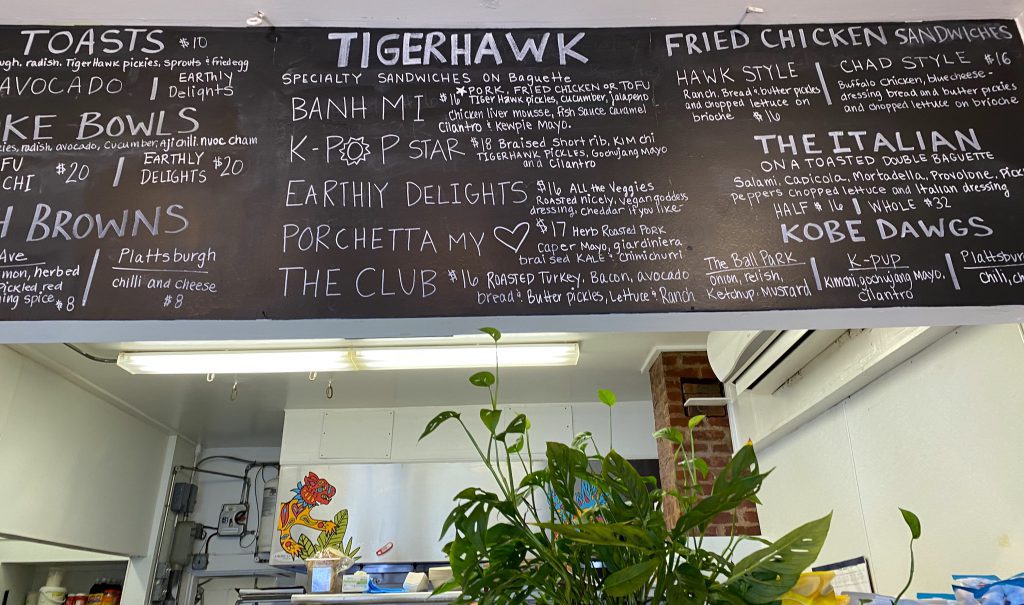 TOASTS $10
ugh, radish, TigerHawk pickies, sprouts & fried egg
AVOCADO | EARTHLY Delights
KE BOWLS
ies, radish, avocado, Cucumber, Aji chili nuoc cham
FU
CHI $20 | EARTHLY DELIGHTS $20
H BROWNS
Ave
mon, herbed
Pickled red
ing spice $8
Plattsburgh
chilli and cheese
$8
TIGERHAWK
SPECIALTY SANDWICHES ON Baguette
BANH MI $16
★PORK, FRIED CHICKEN OR TOFU
Tiger Hawk pickles, cucumber, jalapeno
Chicken liver mousse, Fish Sauce Caramel
Cilantro & Kewpie Mayo.
K-POP STAR $18 Braised Short rib, Kim chi
TIGERHAWK PICKLES, Gochujang Mayo
and Cilantro
EARTHLY DELIGHTS $16 All the Veggies
Roasted nicely, vegan goddess
dressing, cheddar if you like
PORCHETTA MY ♡ $17 Herb Roasted Pork
Caper Mayo, giardiniera
braised KALE & Chimichurri
THE CLUB $16 ROASTED Turkey, Bacon, avocado
bread & Butter pickles, Lettuce & Ranch
FRIED CHICKEN SANDWICHES
HAWK STYLE
Ranch, Bread & butter pickles
and chopped lettuce on
brioche $16
CHAD STYLE $16
Buffalo chicken, bluecheese-
dressing bread and butter pickles
and chopped lettuce on brioche
THE ITALIAN
ON A TOASTED DOUBLE BAGUETTE
Salami, Capicola, Mortadella, Provolone, Pick
peppers chopped lettuce and Italian dressing
HALF $16 | WHOLE $32
KOBE DAWGS
The Ball Park
onion, relish,
Ketchup, Mustard
K-PUP
Kimchi, gochujang Mayo,
cilantro
Plattsbur
Chili, ch